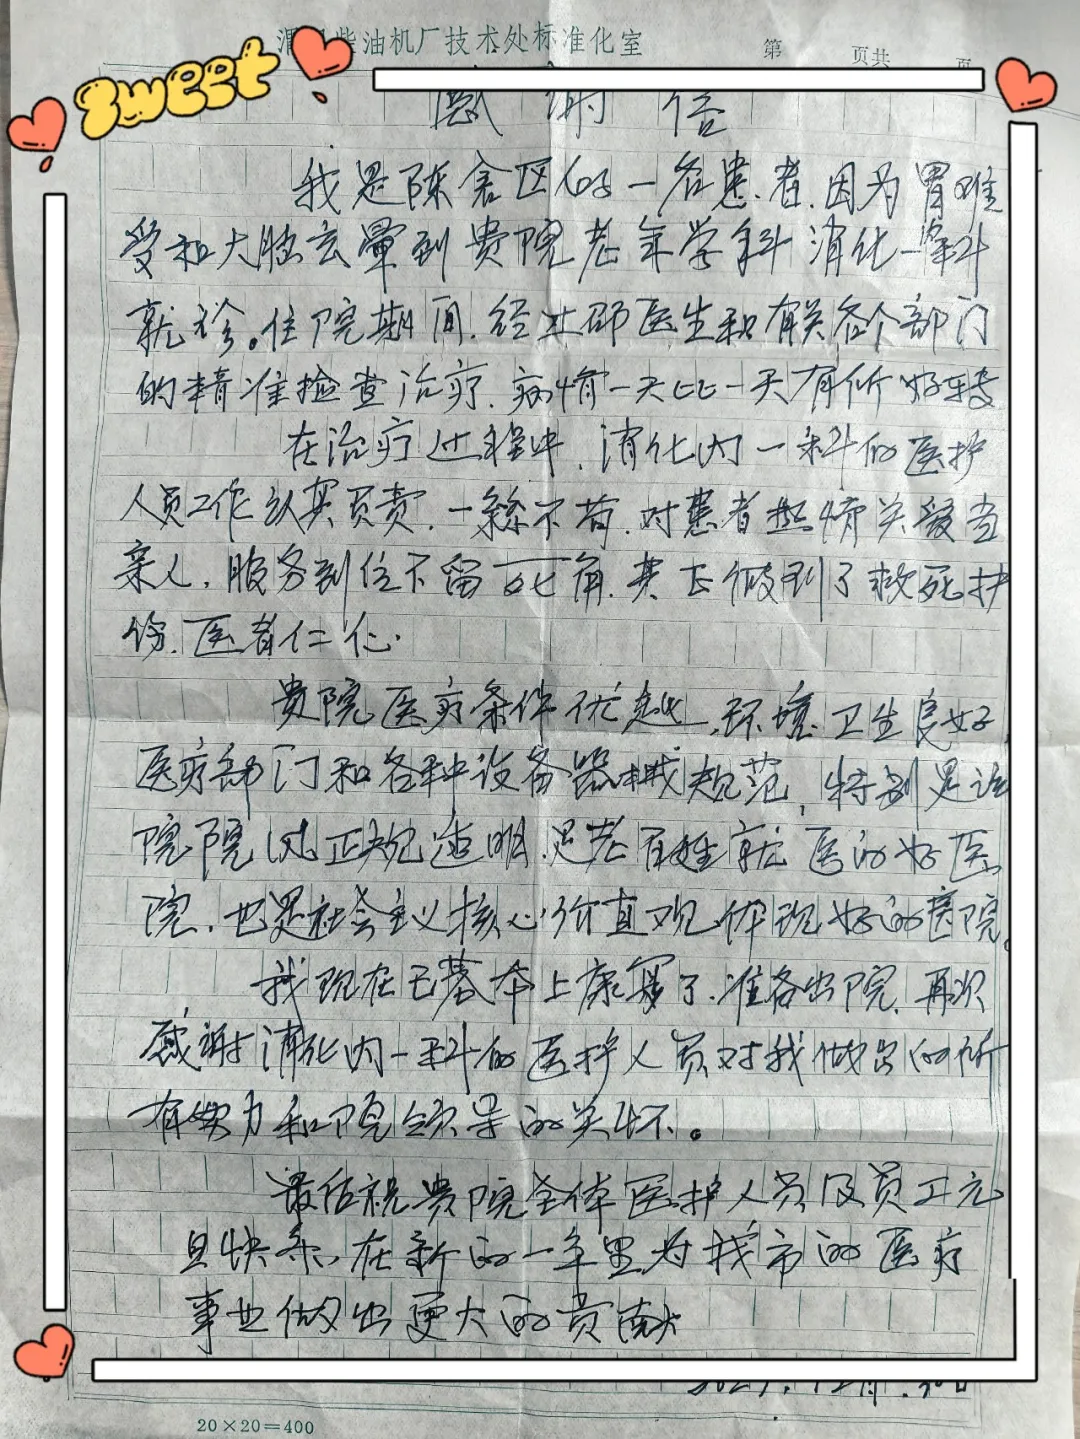 柴油机厂技术处标准化室 第 页共 页
sweet
感谢信
我是陈仓区的一名患者,因为胃难
受和大脑玄晕到贵院老年学科消化内一科
就诊。住院期间,经过邵医生和有关各个部门
的精准检查治疗,病情一天比一天有所好转
在治疗过程中,消化内一科的医护
人员工作认真负责,一丝不苟,对患者热情关爱当
亲人,服务到位不留死角,真正做到了救死扶
伤,医者仁心.
贵院医疗条件优越,环境卫生良好
医疗部门和各种设备器械规范,特别是该
院院风正规透明,是老百姓就医的好医
院,也是社会主义核心价值观体现好的医院。
我现在已基本上康复了,准备出院,再次
感谢消化内一科的医护人员对我做出的所
有努力和院领导的关怀。
最后祝贵院全体医护人员及员工元
旦快乐,在新的一年里为我市的医疗
事业做出更大的贡献
12月.30日
20×20=400